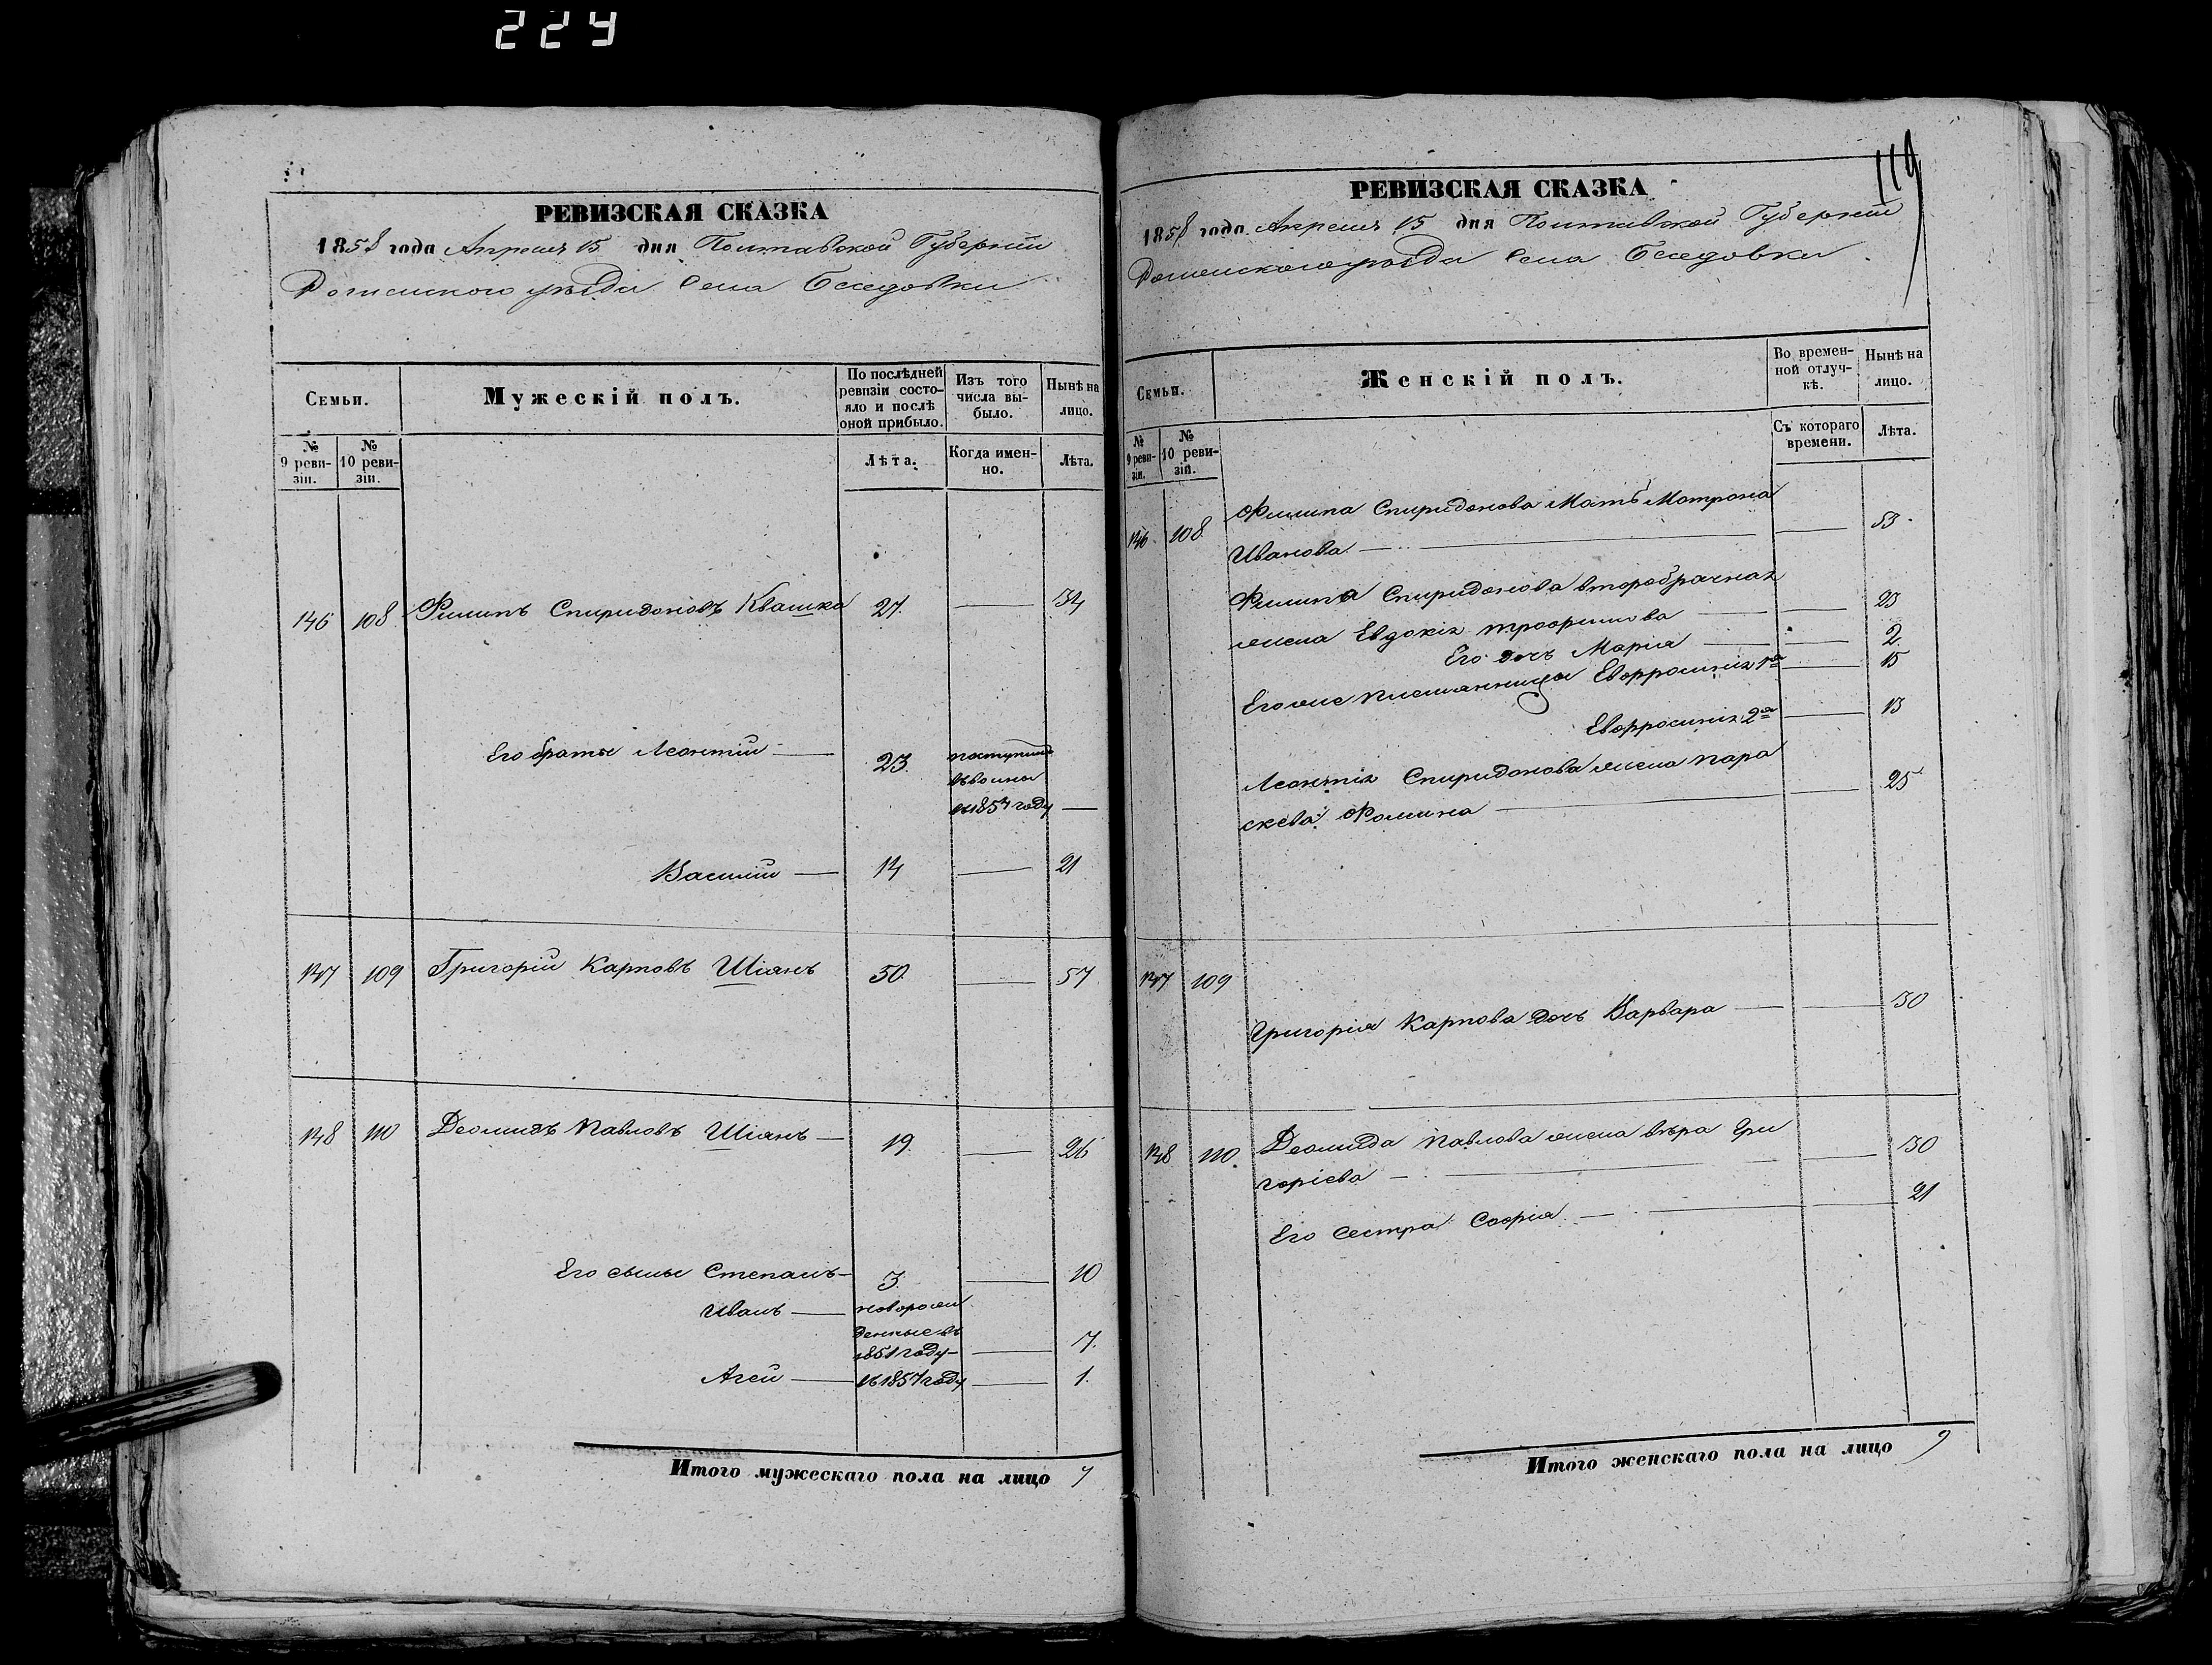 224
РЕВИЗСКАЯ СКАЗКА
1858 года Апреля 15 дня Полтавской Губерніи
Роменского уѣзда Села Беседовки
Семьи.
Мужескій полъ.
По послѣдней ревизіи состояло и послѣ оной прибыло.
Изъ того числа выбыло.
Нынѣ на лицо.
№ 9 ревизіи.
№ 10 ревизіи.
Лѣта.
Когда именно.
Лѣта.
146 108 Филипъ Спиридоновъ Квашка 27. — 34
Его братья Леонтій — 23. поступилъ
въ воины
въ 1854 году —
Василій — 14 — 21
147 109 Григорій Карповъ Шіянъ 50. — 57
148 110 Деомидъ Павловъ Шіянъ — 19. — 26
Его сыны Степанъ — 3. — 10
Иванъ — новорож
денные въ
1851 году — — 7.
Агей — въ 1857 году — 1.
Итого мужескаго пола на лицо 7
119
РЕВИЗСКАЯ СКАЗКА
1858 года Апреля 15 дня Полтавской Губерніи
Роменского уѣзда Села Беседовки
Семьи.
Женскій полъ.
Во временной отлучкѣ.
Нынѣ на лицо.
№ 9 ревизіи.
№ 10 ревизіи.
Съ котораго времени.
Лѣта.
146 108 Филипа Спиридонова Мать Мотрона
Иванова — — 53
Филипа Спиридонова второбрачная
жена Евдокія Трофимова — — 23
Его дочь Марія — — 2.
Его же племянницы Евфросинія 1я — 15
Евфросинія 2я — 13
Леонтія Спиридонова жена Пара
скева Фомина — — 25
147 109
Григорія Карпова дочь Варвара — — 30
148 110. Деомида Павлова жена Вѣра Гри
горіева — — 30
Его сестра Софія — — 21
Итого женскаго пола на лицо 9